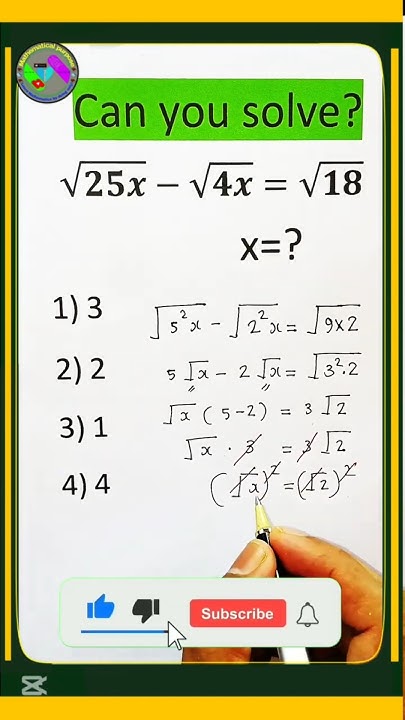 Mathematical purpose
Can you solve?
√25x − √4x = √18
x=?
1) 3
2) 2
3) 1
4) 4
√5²x - √2²x = √9x2
5√x - 2√x = √3²·2
√x (5-2) = 3√2
√x · 3 = 3√2
(√x)² = (√2)²
Subscribe